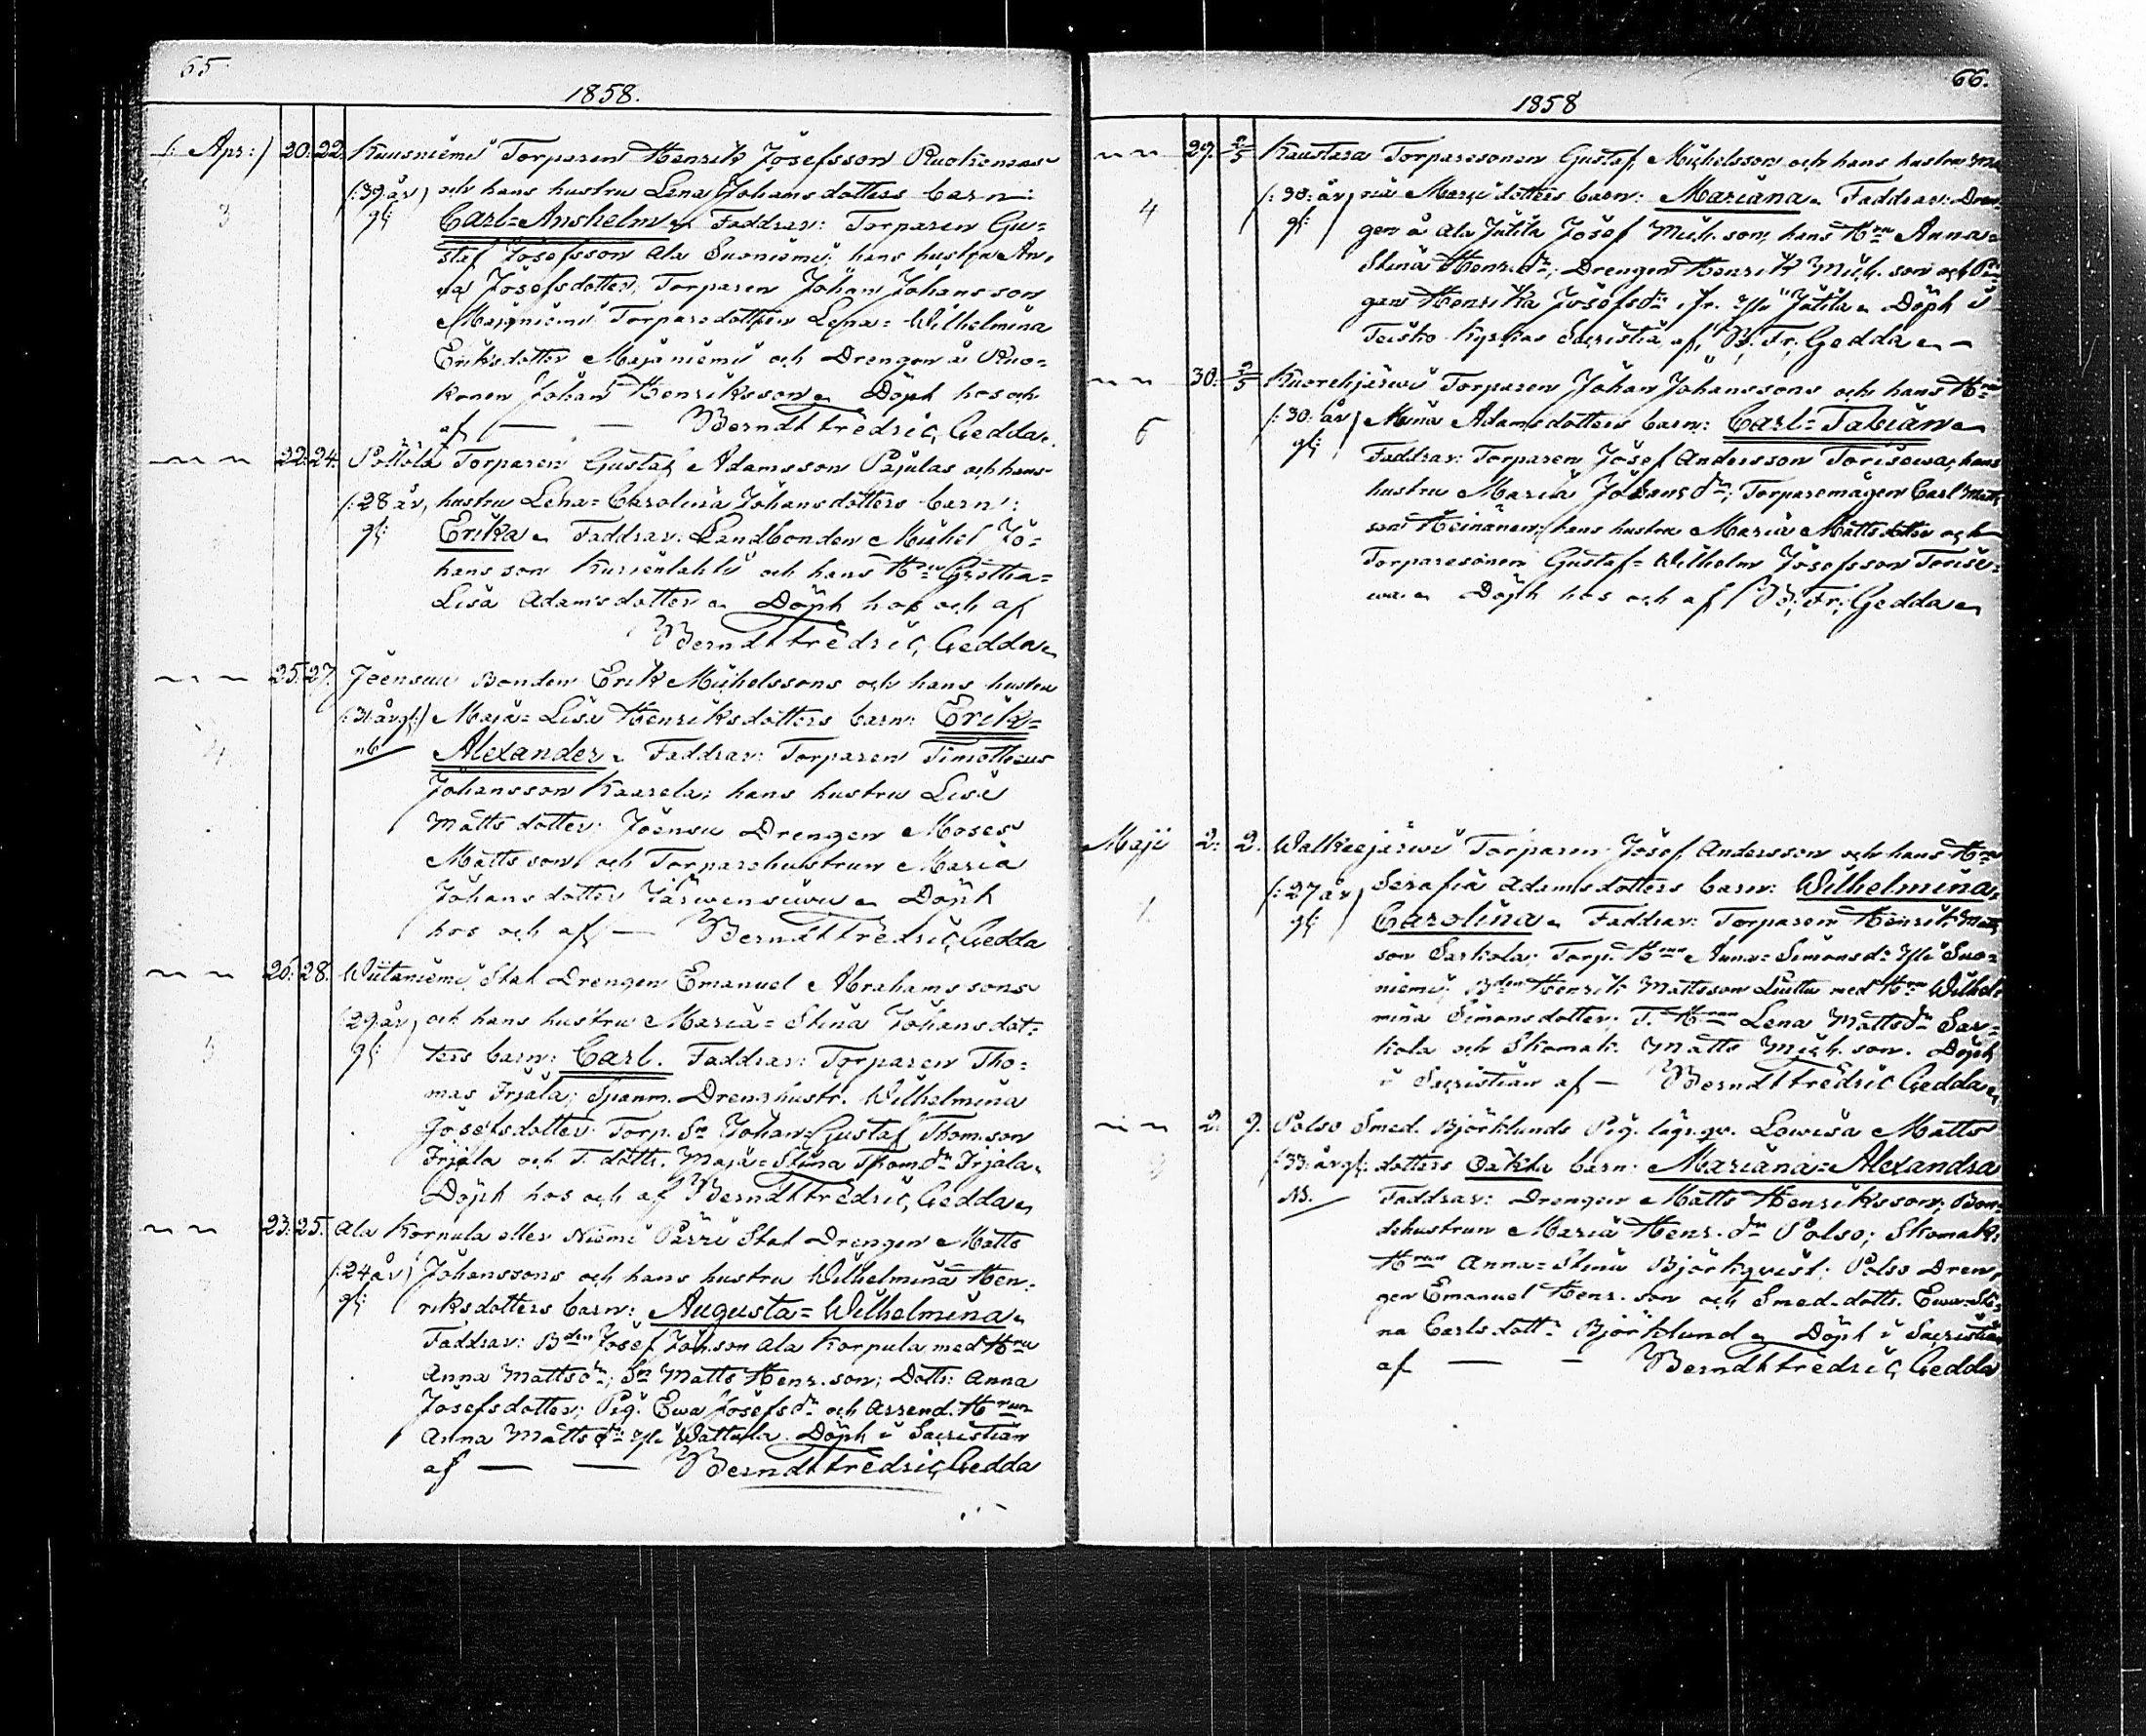 65
1858.
(: Apr :) 20. 22. Kuusniemi Torparen Henrik Josefsson Ruokonens
(: 39 år och hans hustru Lena Johansdotters barn:
3 gl: Carl=Anshelm Faddrar: Torparen Gu=
staf Josefsson Ala Suoniemi; hans hustru An=
na Josefsdotter, Torparen Johan Johansson
Majaniemi Torparedottren Lena=Wilhelmina
Eriksdotter Majaniemi och Drengen å Ruo=
konen Johan Henriksson Döpt hos och
af — — Berndt Fredric Gedda.
22. 24. Pöllölä Torparen Gustaf Adamsson Pajulas och hans
(: 28 år, hustru Lena=Carolina Johansdotters barn:
gl: Erika Faddrar: Landbonden Michel Jo=
hansson Kurjenlahti och hans Hru Gretha=
Lisa Adamsdotter Döpt hos och af
Berndt Fredric Gedda
25. 27. Joensuu Bonden Erik Michelssons och hans hustru
(: 31 år gl:) Maja=Lisa Henriksdotters barn: Erik=
4 Alexander. Faddrar: Torparen Timotheus
Johansson Kaarela; hans hustru Lisa
Mattsdotter; Joensu Drengen Moses
Mattsson och Torparehustrun Maria
Johansdotter Järwensuu Döpt
hos och af — Berndt Fredric Gedda
26. 28. Wiitaniemi Stat Drengen Emanuel Abrahamssons
(: 29 år, och hans hustru Maria=Stina Johansdot=
5 gl: ters barn: Carl. Faddrar: Torparen Tho=
mas Irjala; Spanm. Drenghustr. Wilhelmina
Josefsdotter Torp. Sn Johan=Gustaf Thom.son
Irjala och T. dottr. Maja=Stina Thom.dr Irjala.
Döpt hos och af Berndt Fredric Gedda
23. 25. Ala Korpula eller Niemi Pärri Stat Drengen Matts
(: 24 år Johanssons och hans hustru Wilhelmina Hen=
gl: riksdotters barn: Augusta=Wilhelmina
Faddrar: Bden Josef Joh.son Ala Korpula med Hru
Anna Mattsdr; Sn Matts Henr.son; Dottr. Anna
Josefsdotter; Pig. Ewa Josefsdr och Arrend. Hrun
Anna Mattsdr Yli Wattula. Döpt i Sacristian
af — — Berndt Fredric Gedda
66.
1858
29. 2/5 Kaustara Torparesonen Gustaf Michelsson och hans hustru Ma
4 (: 30: år ria Mariædotters barn: Mariana. Faddrar: Dren=
gl: gen å Ala Jutila Josef Mich.son, hans Hru Anna=
Stina Henr.dr; Drengen Henrik Mich.son och Pi
gan Henrika Josefsdr ifr. Yli Jutila Döpt i
Teisko Kyrkas Sacristia af B. Fr. Gedda —
30. 2/5 Kuorehjärwi Torparen Johan Johanssons och hans Hru
(: 30: år Mina Adamsdotters barn: Carl=Fabian
gl: Faddrar: Torparen Josef Andersson Torisewa, hans
hustru Maria Johansdr; Torparemågen Carl Matts
son Heinänen; hans hustru Maria Mattsdotter och
Torparesonen Gustaf=Wilhelm Josefsson Torise=
wa. Döpt hos och af B; Fr; Gedda
Maji 2. 2. Walkeejärwi Torparen Josef Andersson och hans Hru
(: 27 år Serafia Adamsdotters barn: Wilhelmina
1. gl: Carolina. Faddrar: Torparen Henrik Matts
son Sarkola; Torp. Hrun Anna=Simonsdr Yli Suo=
niemi; Bden Henrik Mattsson Liuttu med Hru Wilhel
mina Simonsdotter; T. Hrun Lena Mattsdr Sar=
kola och Skomak. Matts Mich.son. Döpt
i Sacristian af — Berndt Fredric Gedda
2. 9. Polso Smed. Björklunds Pig. lägr. qv. Lowisa Matts
(: 33: år gl: dotters oäkta barn: Mariana=Alexandra
NB. Faddrar: Drengen Matts Henriksson; Bon=
dehustrun Maria Henr.dr Polso; Skomak.
Hrun Anna=Stina Björkqvist; Polso Dren=
gen Emanuel Henr.son och Smed.dottr. Ewa=Sti=
na Carlsdottr Björklund Döpt i Sacristian
af — — Berndt Fredric Gedda